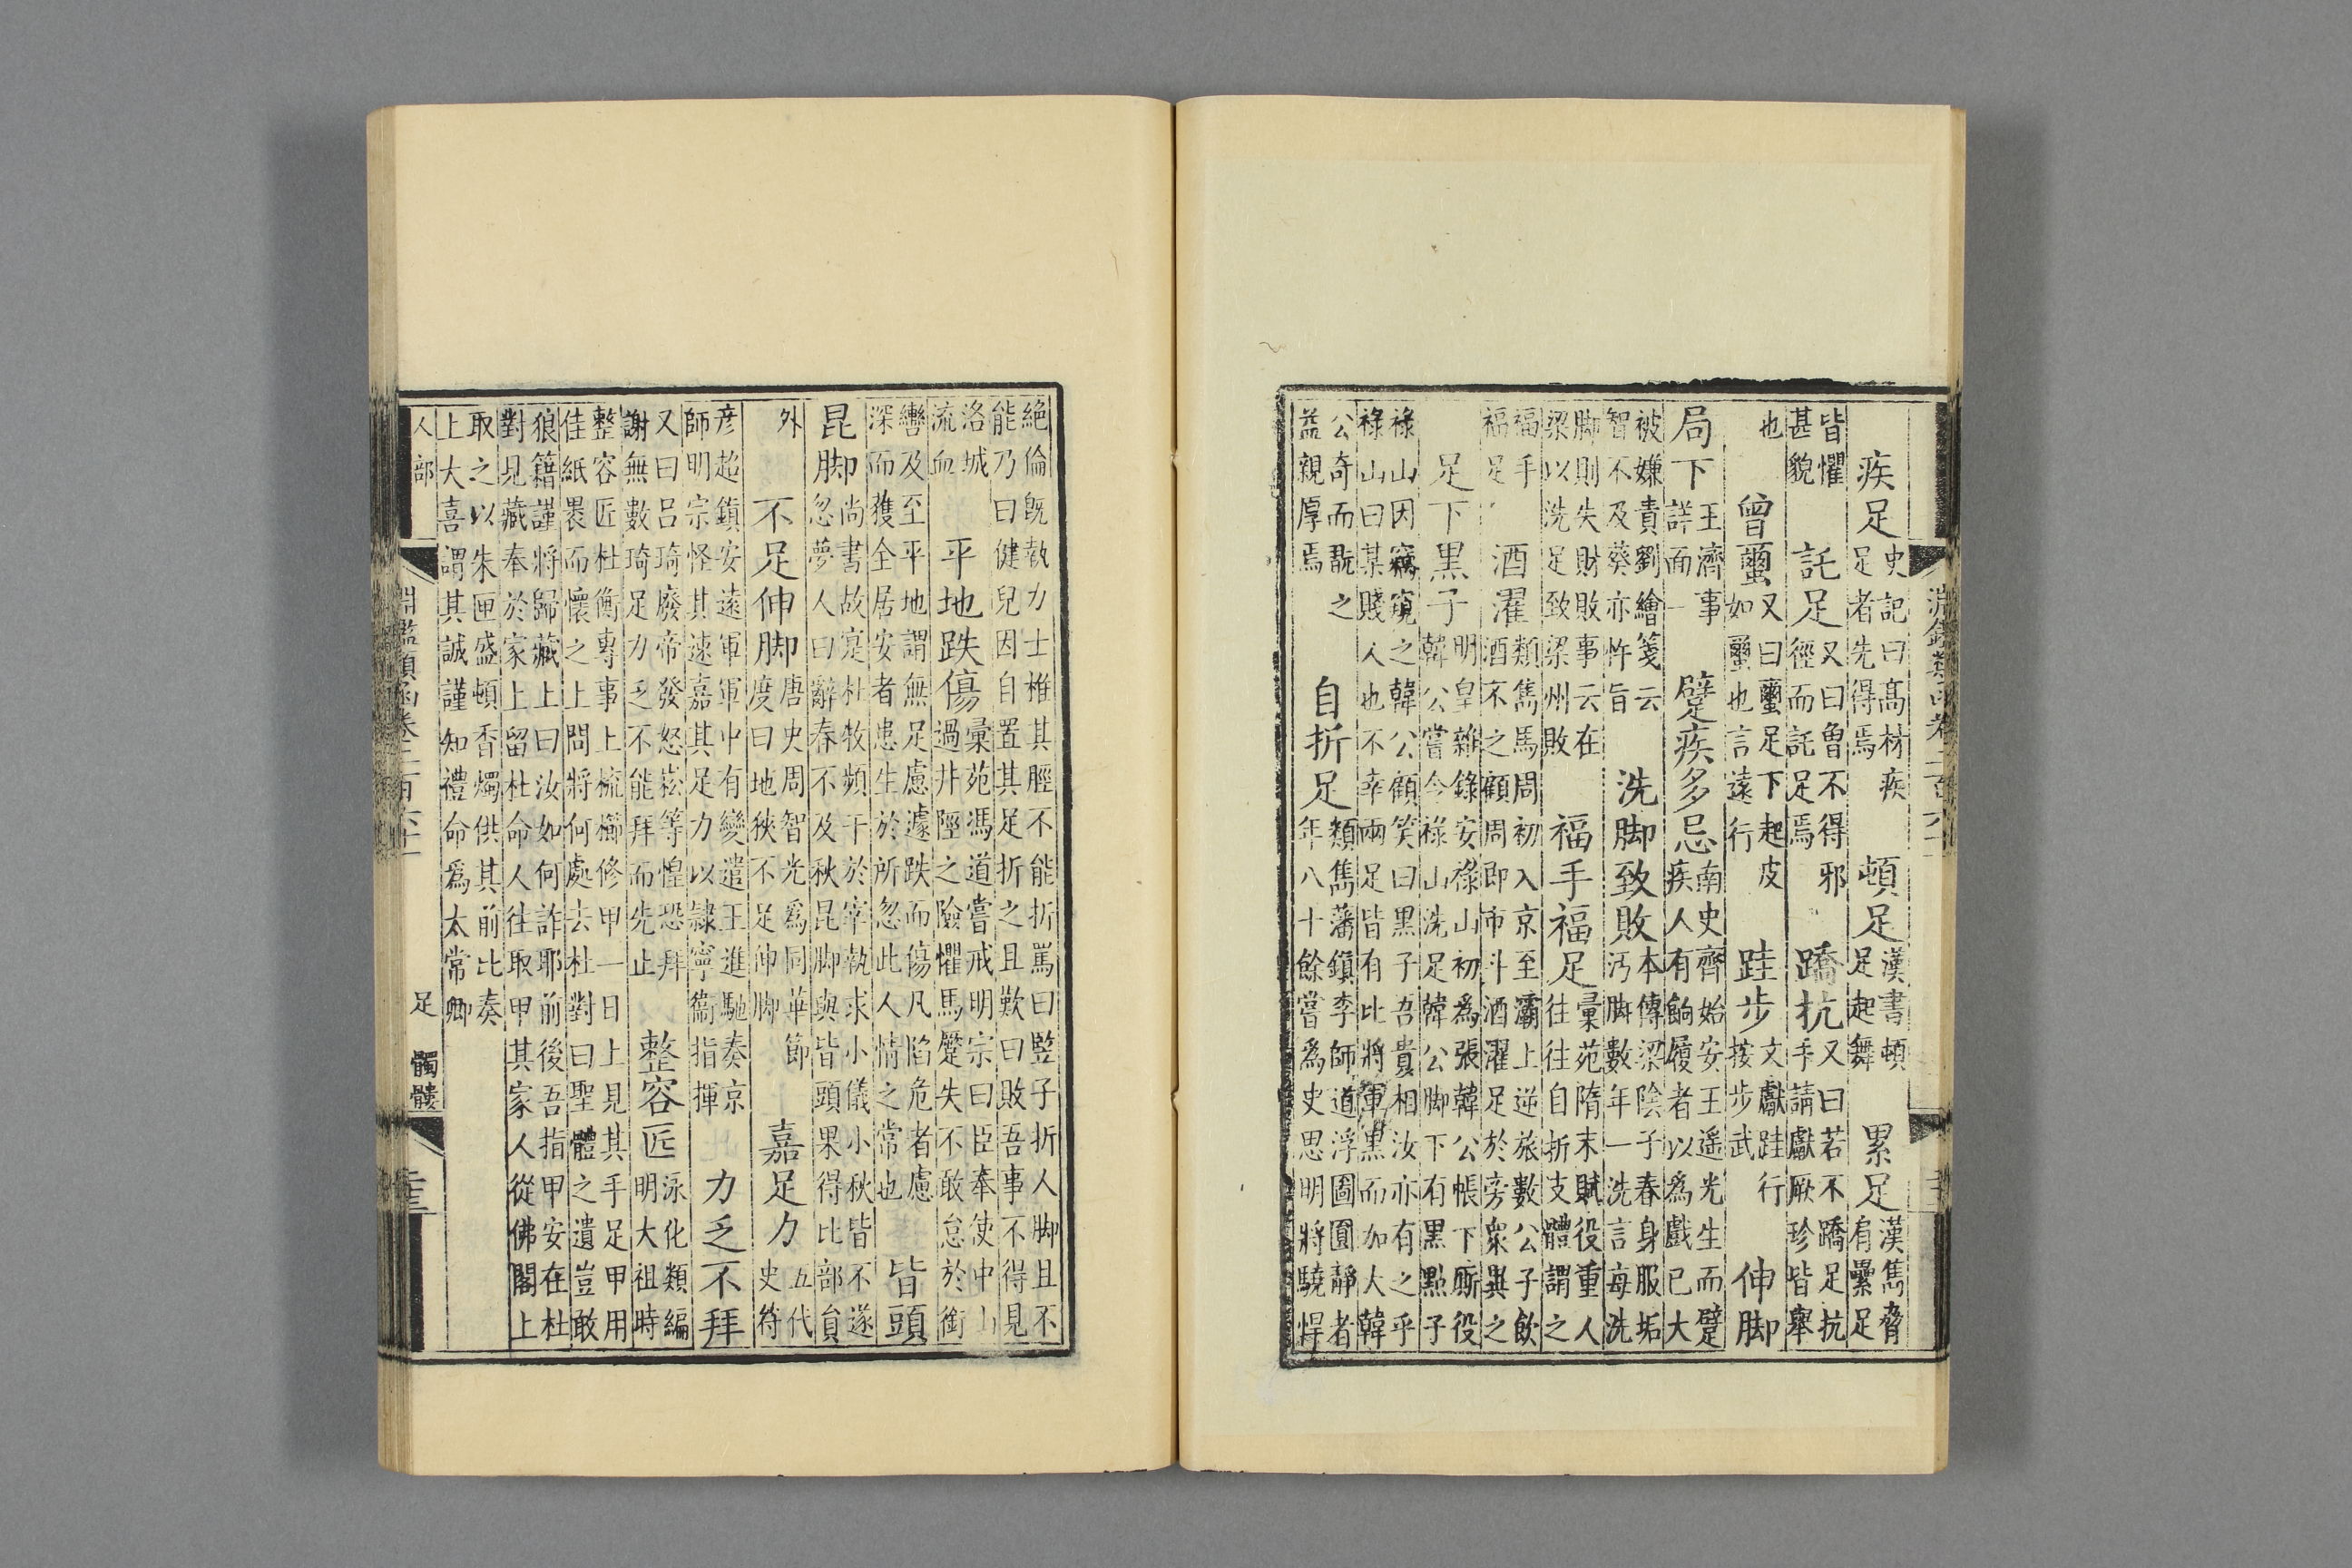 淵鑑類函卷二百六十一
疾足 史記曰髙材疾足者先得焉 頓足 漢書頓足起舞 累足 漢雋脅肩纍足
皆懼甚貌 託足 又曰曾不得邪徑而託足焉 蹻抗 又曰若不蹻足抗手請獻厥珍皆舉
也 曾䘆 又曰䘆足下起皮如䘆也言遠行 跬步 文獻跬行按步武 伸脚
局下 王濟事詳面一 躄疾多忌 南史齊始安王遙光生而躄疾人有餉履者以為戲已大
被嫌責劉繪箋云智不及葵亦忤旨 洗脚致敗 本傳梁陰子春身服垢汚脚數年一洗言每洗
脚則失財敗事云在梁以洗足致梁州敗 福手福足 彚苑隋末賦役重人往往自折支體謂之
福手福足 酒濯 類雋馬周初入京至灞上逆旅數公子飲酒不之顧周即市斗酒濯足於旁衆異之
足下黑子 明皇雜錄安祿山初為張韓公帳下厮役韓公嘗令祿山洗足韓公脚下有黑點子
祿山因竊窺之韓公顧笑曰黑子吾貴相汝亦有之乎祿山曰某賤人也不幸兩足皆有比將軍黑而加大韓
公奇而翫之益親厚焉 自折足 類雋藩鎮李師道浮圖圓靜者年八十餘嘗為史思明將驍悍
絕倫旣執力士椎其脛不能折罵曰竪子折人脚且不能乃曰健兒因自置其足折之且歎曰敗吾事不得見
洛城流血 平地跌傷 彚苑馮道嘗戒明宗曰臣奉使中山過井陘之險懼馬蹩失不敢怠於銜
轡及至平地謂無足慮遽跌而傷凡陷危者慮深而獲全居安者患生於所忽此人情之常也 皆頭
昆脚 尚書故寔杜牧頻干於宰執求小儀小秋皆不遂忽夢人曰辭春不及秋昆脚與皆頭果得比部貟
外 不足伸脚 唐史周智光為同華節度曰地狹不足伸脚 嘉足力 五代史符
彥超鎮安遠軍軍中有變遣王進馳奏京師明宗怪其速嘉其足力以隸寧衞指揮 力乏不拜
又曰呂琦廢帝發怒崧等惶恐拜謝無數琦足力乏不能拜而先止 整容匠 泳化類編明大祖時
整容匠杜衡專事上梳櫛修甲一日上見其手足甲用佳紙褁而懷之上問將何處去杜對曰聖體之遺豈敢
狼籍謹將歸藏上曰汝如何詐耶前後吾指甲安在杜對見藏奉於家上留杜命人往取甲其家人從佛閣上
取之以朱匣盛頓香燭供其前比奏上大喜謂其誠謹知禮命為太常卿
人部 淵鑑類函卷二百六十一 足 髑髏 二十三